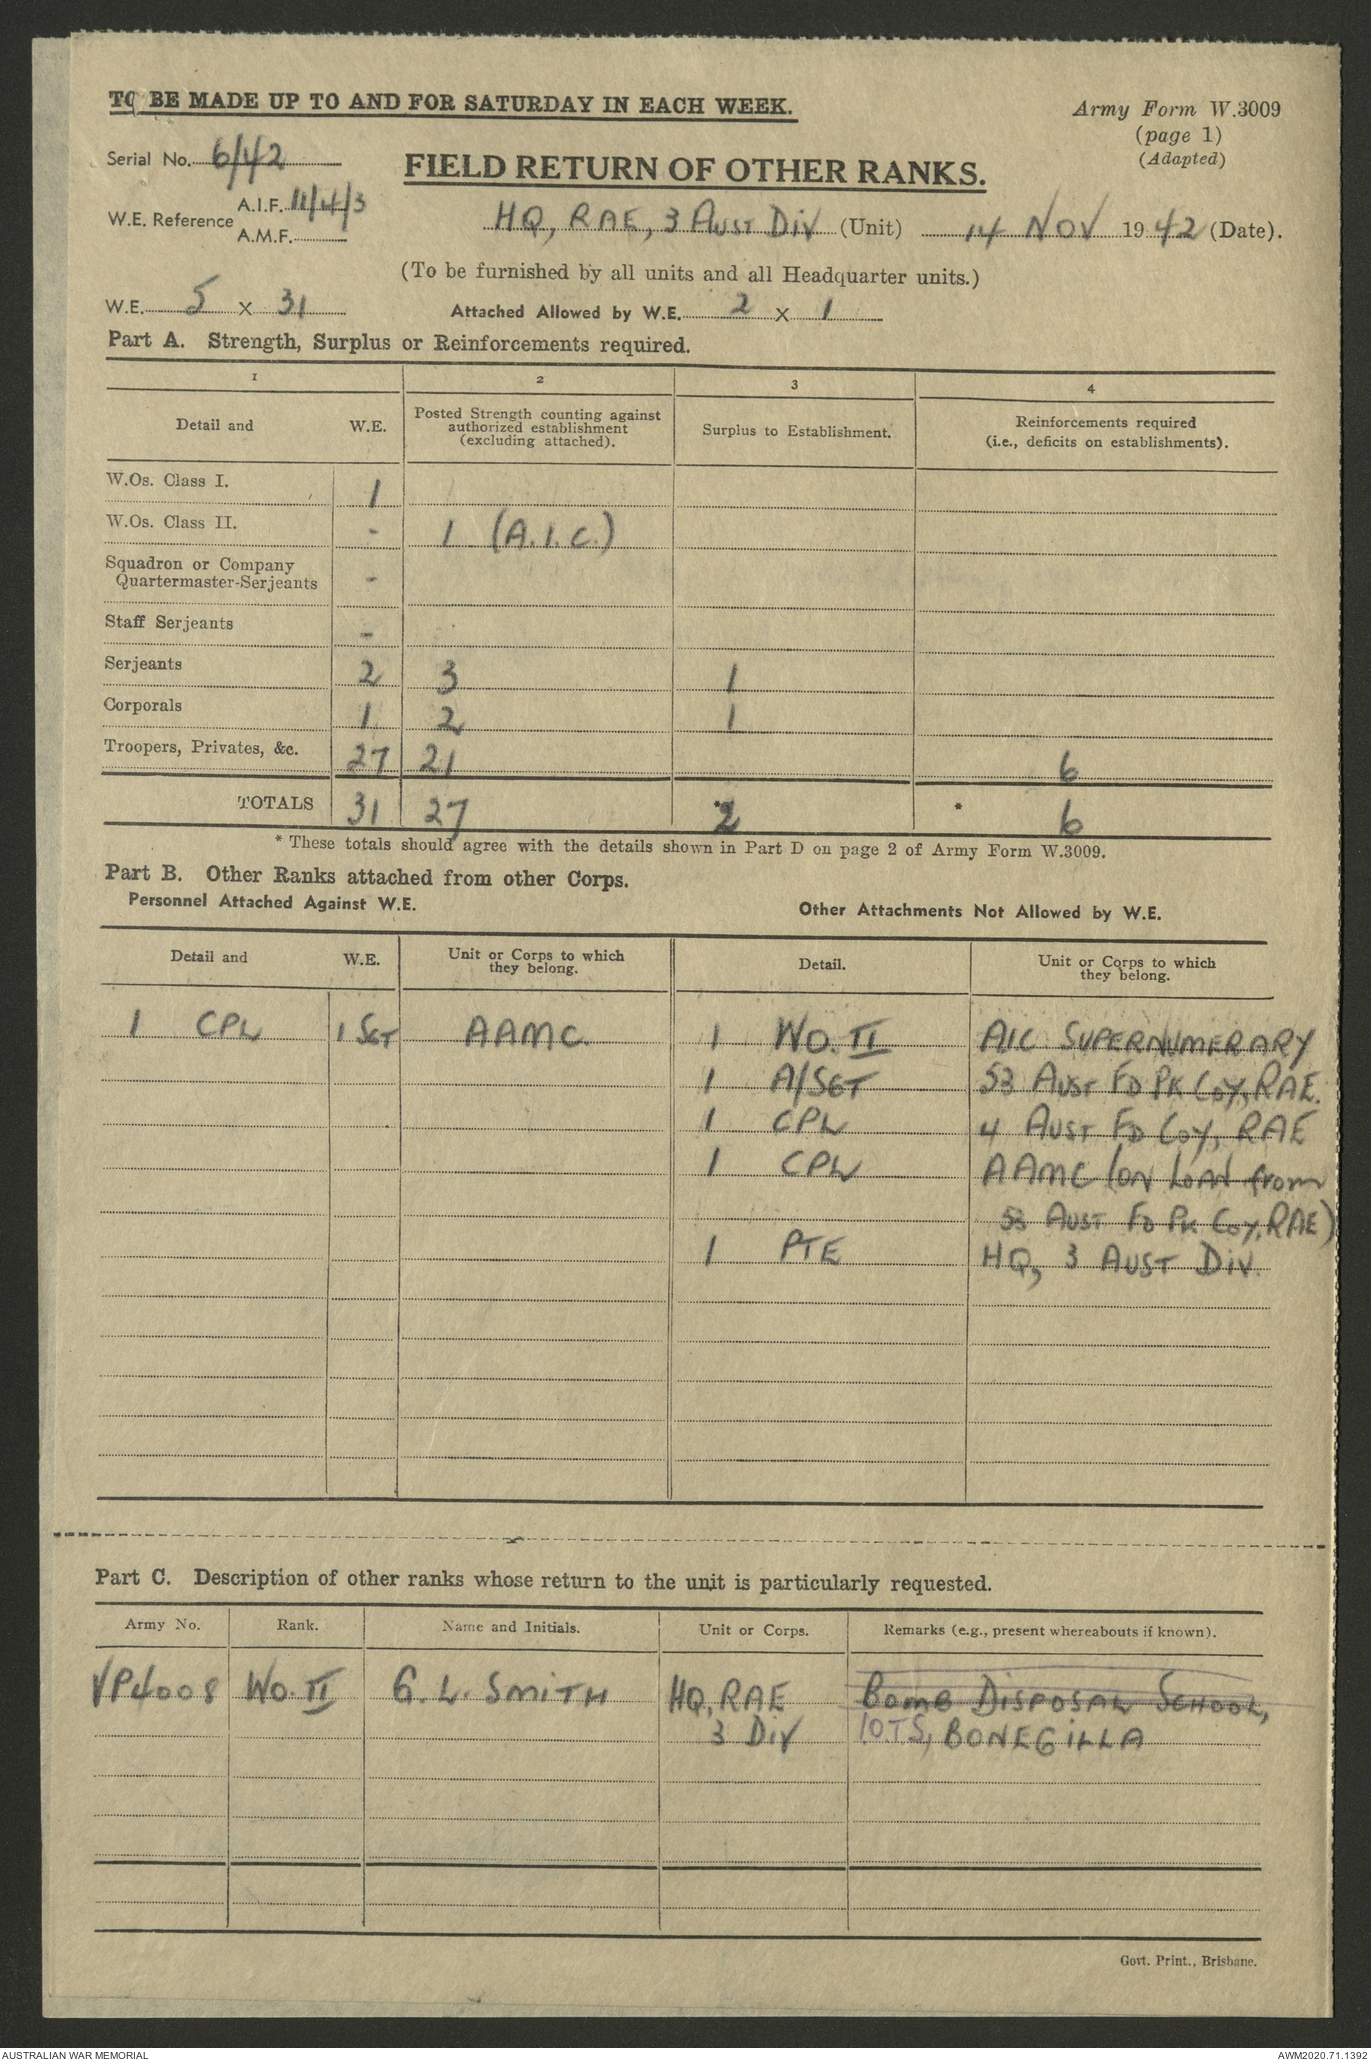 TO BE MADE UP TO AND FOR SATURDAY IN EACH WEEK.
Army Form W.3009
(page 1)
(Adapted)
Serial No. 6/42
FIELD RETURN OF OTHER RANKS.
W.E. Reference A.I.F. 11/4/3
A.M.F.
HQ, RAE, 3 AUST DIV (Unit) 14 NOV 1942 (Date).
(To be furnished by all units and all Headquarter units.)
W.E. 5 X 31 Attached Allowed by W.E. 2 X 1
Part A. Strength, Surplus or Reinforcements required.
1 2 3 4
Detail and W.E. Posted Strength counting against authorized establishment (excluding attached). Surplus to Establishment. Reinforcements required (i.e., deficits on establishments).
W.Os. Class I. 1
W.Os. Class II. - 1 (A.I.C.)
Squadron or Company
Quartermaster-Serjeants -
Staff Serjeants -
Serjeants 2 3 1
Corporals 1 2 1
Troopers, Privates, &c. 27 21 6
TOTALS 31 27 *2 * 6
* These totals should agree with the details shown in Part D on page 2 of Army Form W.3009.
Part B. Other Ranks attached from other Corps.
Personnel Attached Against W.E. Other Attachments Not Allowed by W.E.
Detail and W.E. Unit or Corps to which they belong. Detail. Unit or Corps to which they belong.
1 CPL 1 SGT AAMC. 1 WO. II AIC SUPERNUMERARY
1 A/SGT 53 AUST FD PK COY, RAE.
1 CPL 4 AUST FD COY, RAE
1 CPL AAMC (ON LOAN from
53 AUST FD PK COY, RAE)
1 PTE HQ, 3 AUST DIV.
Part C. Description of other ranks whose return to the unit is particularly requested.
Army No. Rank. Name and Initials. Unit or Corps. Remarks (e.g., present whereabouts if known).
VP4008 WO. II G. L. SMITH HQ, RAE BOMB DISPOSAL SCHOOL,
3 DIV 10TS, BONEGILLA
Govt. Print., Brisbane.
AUSTRALIAN WAR MEMORIAL
AWM2020.71.1392